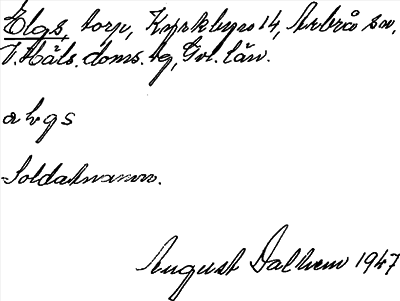 Elgs, torp, Kyrkbyn 14, Arbrå sn,
V. Häls. doms. tg, Gvl. län.
älgs
Soldatnamn.
August Dalhem 1947